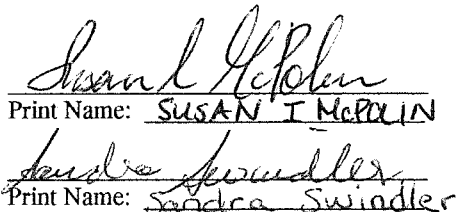 Susan I McPolin
Print Name: SUSAN I McPOLIN
Sandra Swindler
Print Name: Sandra Swindler